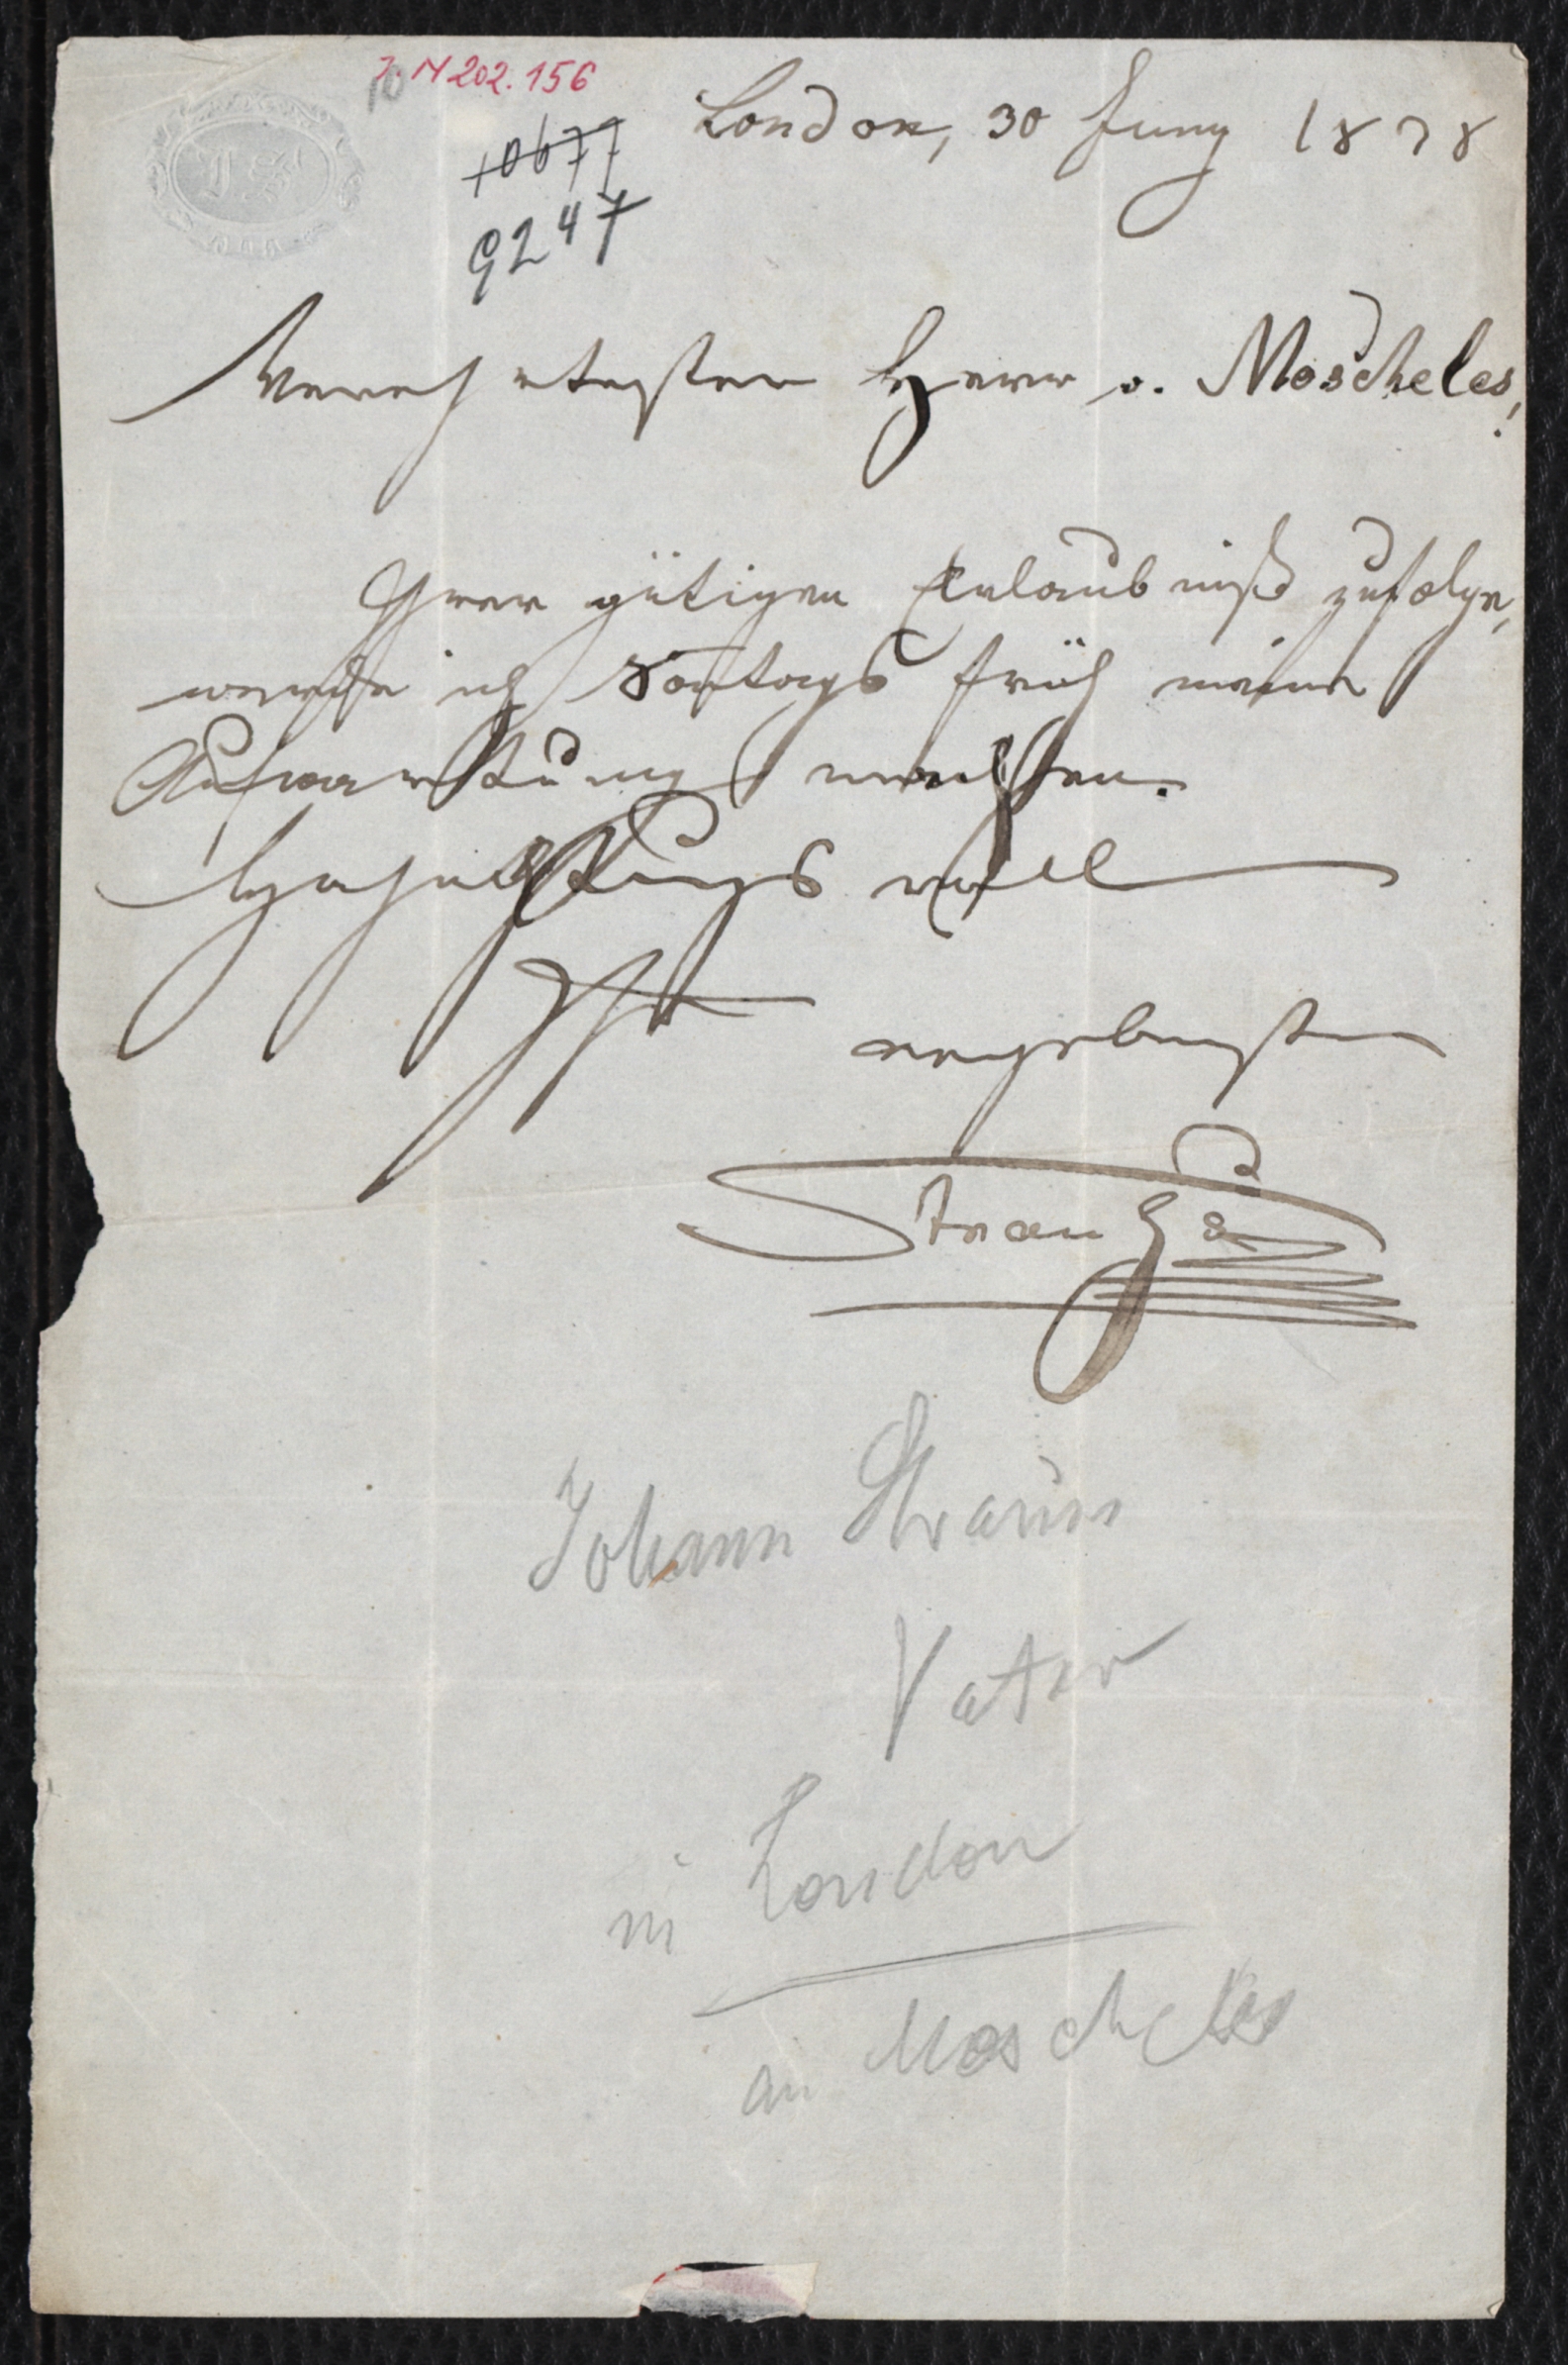 J. N 202.156
10677
9247
London, 30 Juny 1838
Verehrtester Herr v. Moscheles!
Ihrer gütigen Erlaubniß zufolge,
werde ich Sontags früh meine
Aufwartung machen.
Hochachtungsvoll
Ihr
ergebenster
Strauß
Johann Strauss
Vater
in London
an Moscheles